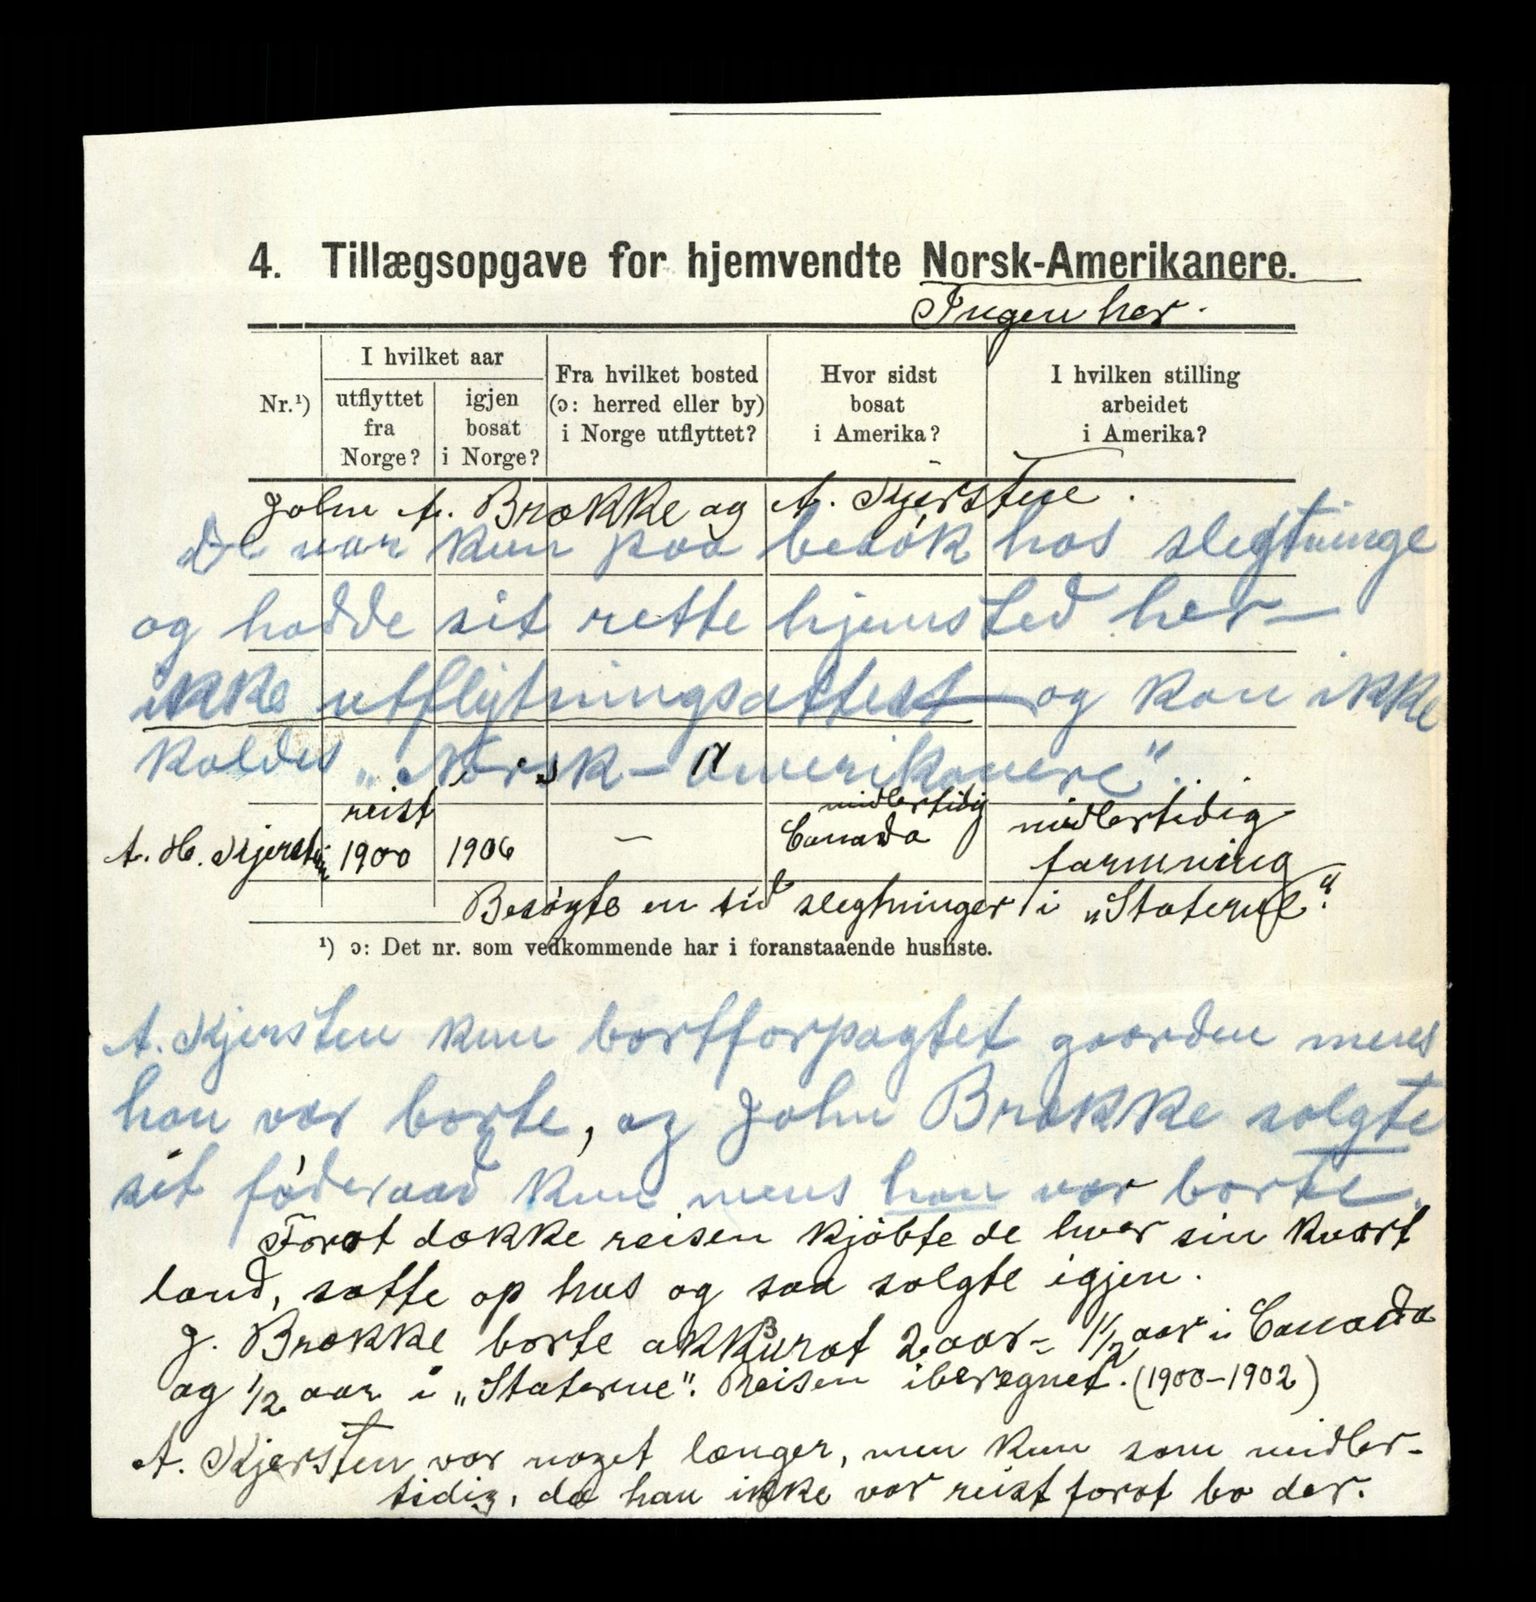 4. Tillægsopgave for hjemvendte Norsk-Amerikanere.
Ingen her.
Nr.¹)
I hvilket aar
utflyttet fra Norge?
igjen bosat i Norge?
Fra hvilket bosted (ɔ: herred eller by) i Norge utflyttet?
Hvor sidst bosat i Amerika?
I hvilken stilling arbeidet i Amerika?
John A. Brække og A. Kjersten.
De var kun paa besøk hos slegtninge
og hadde sit rette hjemsted her–
ikke utflytningsattest – og kan ikke
kaldes „Norsk-Amerikanere".
A. H. Kjersten reist 1900 1906 – midlertidig Canada midlertidig farmning
Besøgte en tid slegtninger i „Staterne".
¹) ɔ: Det nr. som vedkommende har i foranstaaende husliste.
A. Kjersten kun bortforpagtet gaarden mens
han var borte, og John Brække solgte
sit føderaad kun mens han var borte.
Forat dække reisen kjøbte de hver sin kvart
land, satte op hus og saa solgte igjen.
J. Brække borte akkurat 2 aar – 1½ aar i Canada
og ½ aar i „Staterne". Reisen iberegnet. (1900–1902)
A. Kjersten var noget længer, men kun som midler-
tidig, da han ikke var reist forat bo der.